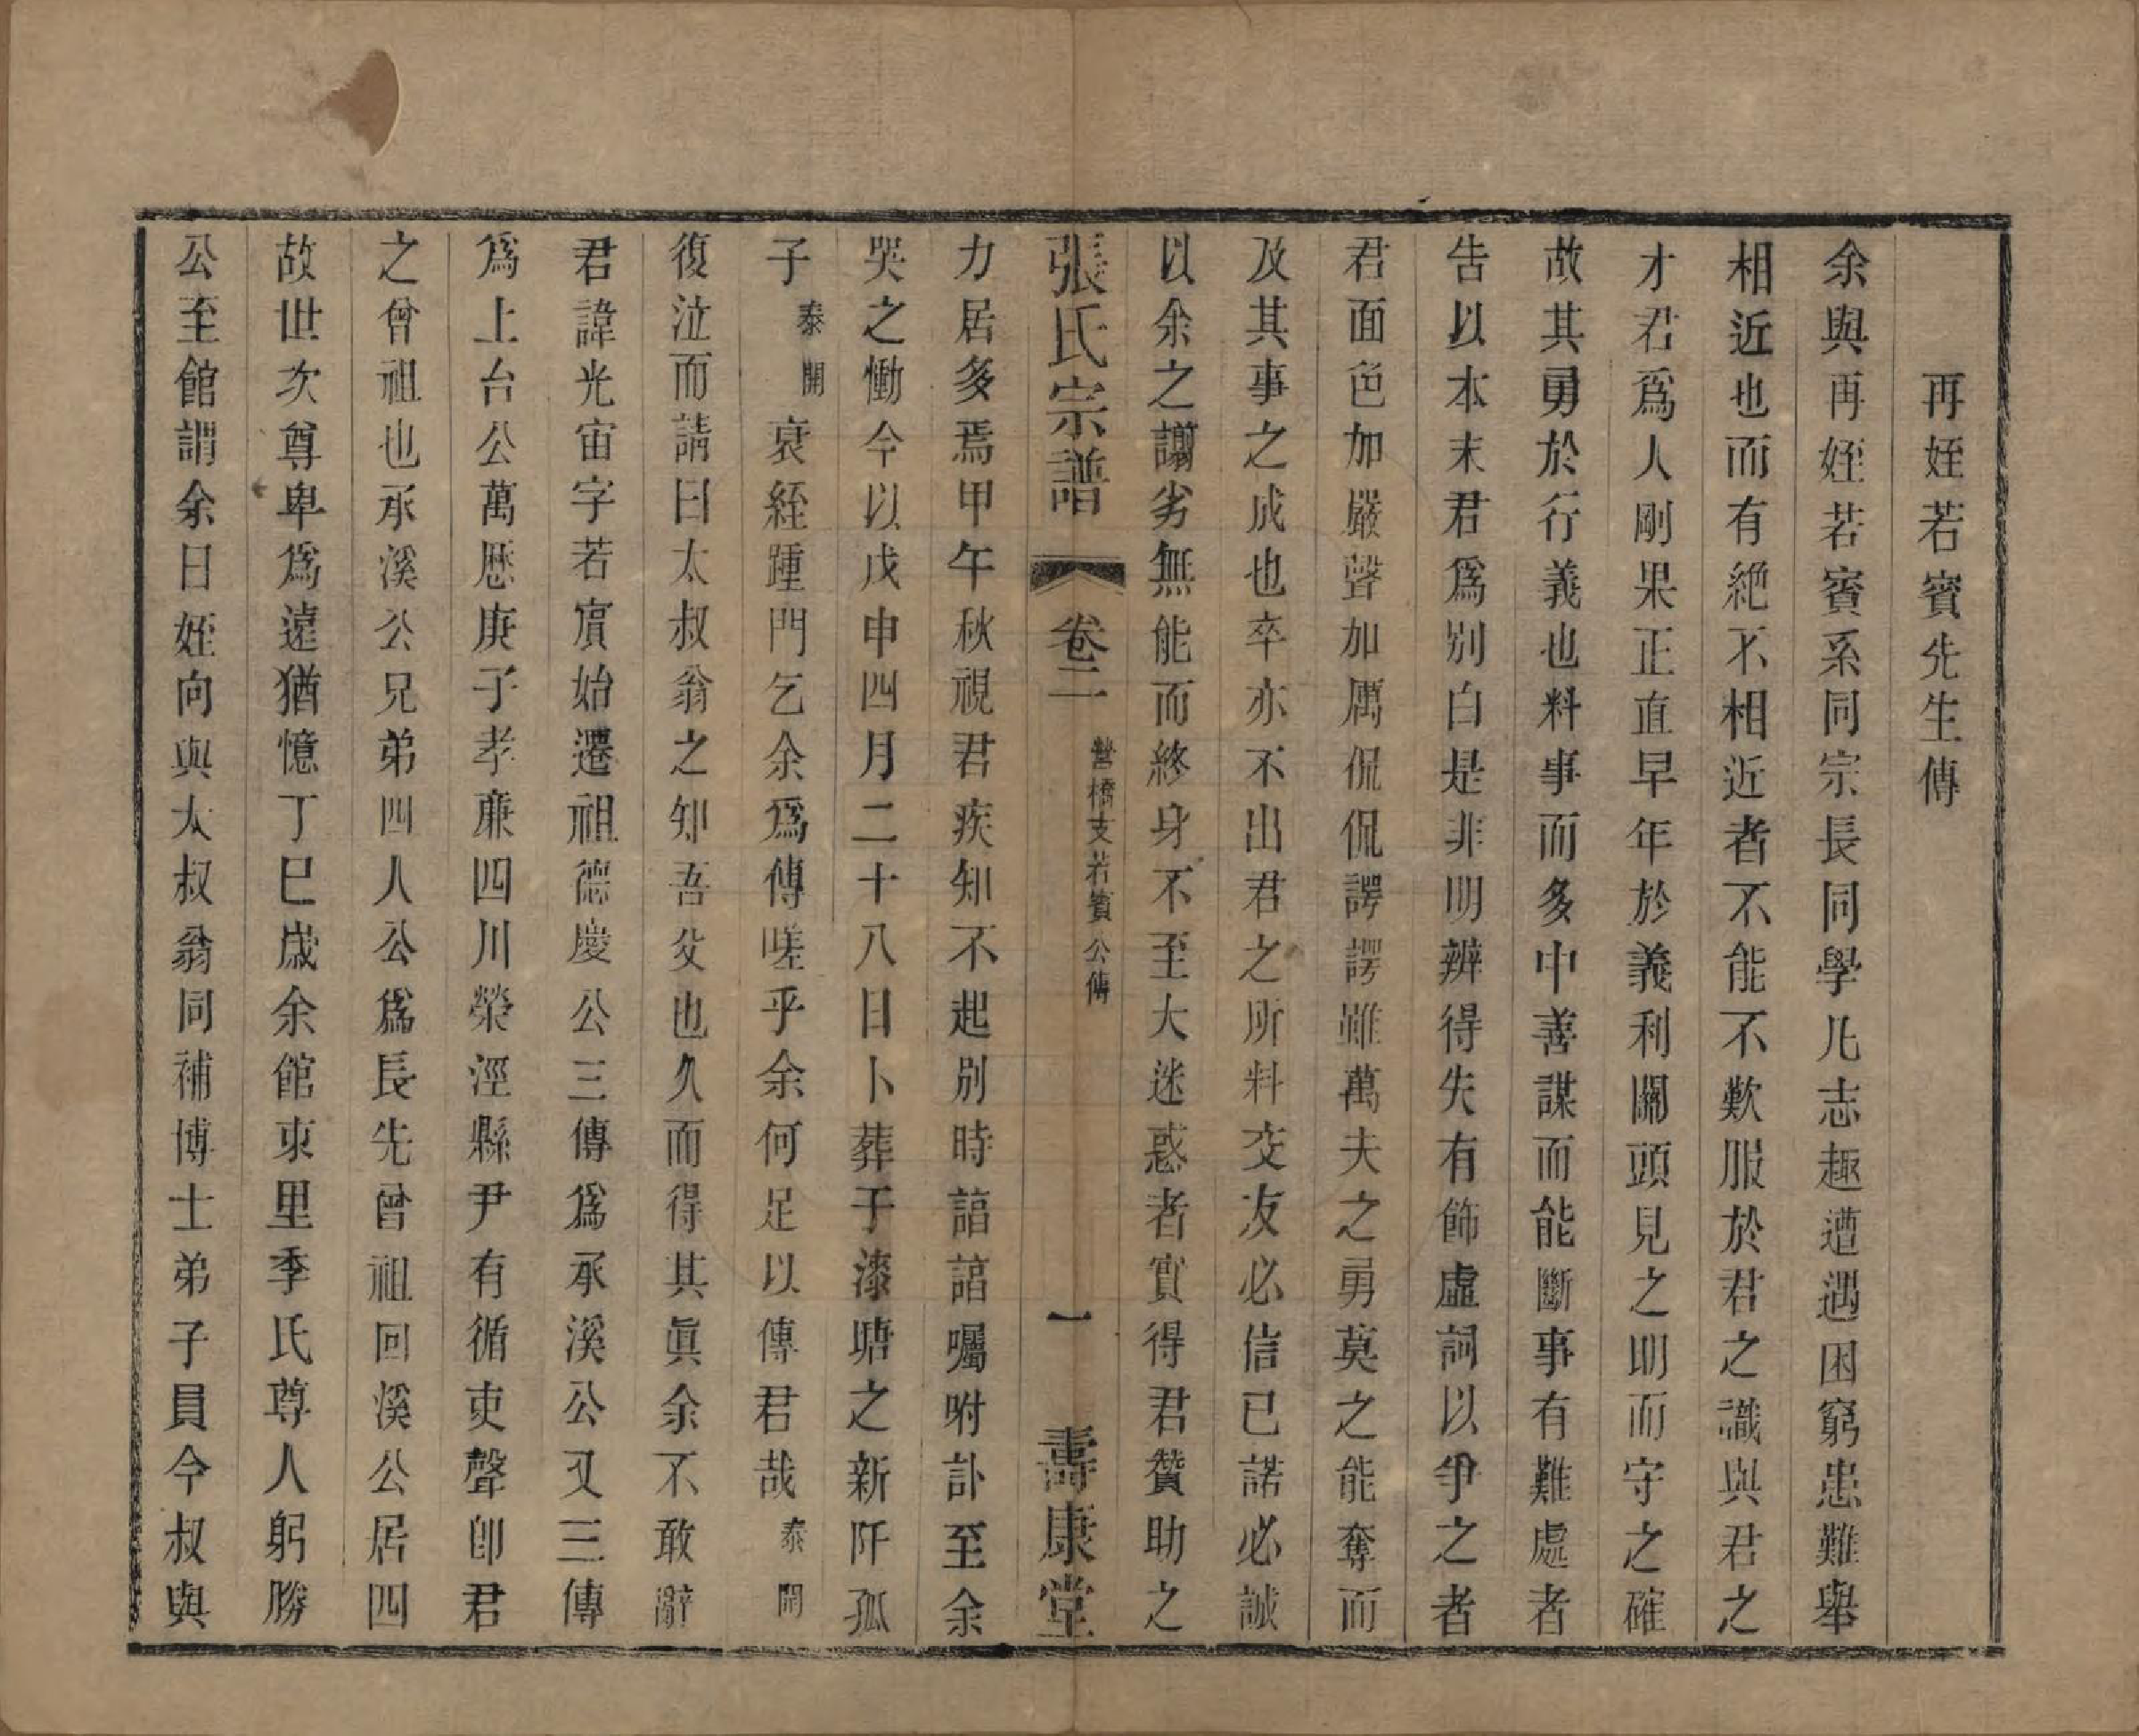 再姪若賓先生傳
余與再姪若賓系同宗長同學凡志趣遭遇困窮患難舉
相近也而有絶不相近者不能不歎服於君之識與君之
才君爲人剛果正直早年於義利關頭見之明而守之確
故其勇於行義也料事而多中善謀而能斷事有難處者
告以本末君爲別白是非明辨得失有飾虛詞以爭之者
君面色加嚴聲加厲侃侃諤諤雖萬夫之勇莫之能奪而
及其事之成也卒亦不出君之所料交友必信已諾必誠
以余之譾劣無能而終身不至大迷惑者實得君贊助之
張氏宗譜 卷二 營橋支若賓公傳 一 壽康堂
力居多焉甲午秋視君疾知不起別時諄諄囑咐訃至余
哭之慟今以戊申四月二十八日卜葬于漆塘之新阡孤
子泰開衰絰踵門乞余爲傳嗟乎余何足以傳君哉泰開
復泣而請曰太叔翁之知吾父也久而得其眞余不敢辭
君諱光宙字若賓始遷祖德慶公三傳爲承溪公又三傳
爲上台公萬厯庚子孝廉四川榮涇縣尹有循吏聲卽君
之曾祖也承溪公兄弟四人公爲長先曾祖回溪公居四
故世次尊卑爲遠猶憶丁巳歲余館東里季氏尊人躬勝
公至館謂余曰姪向與太叔翁同補博士弟子員今叔與